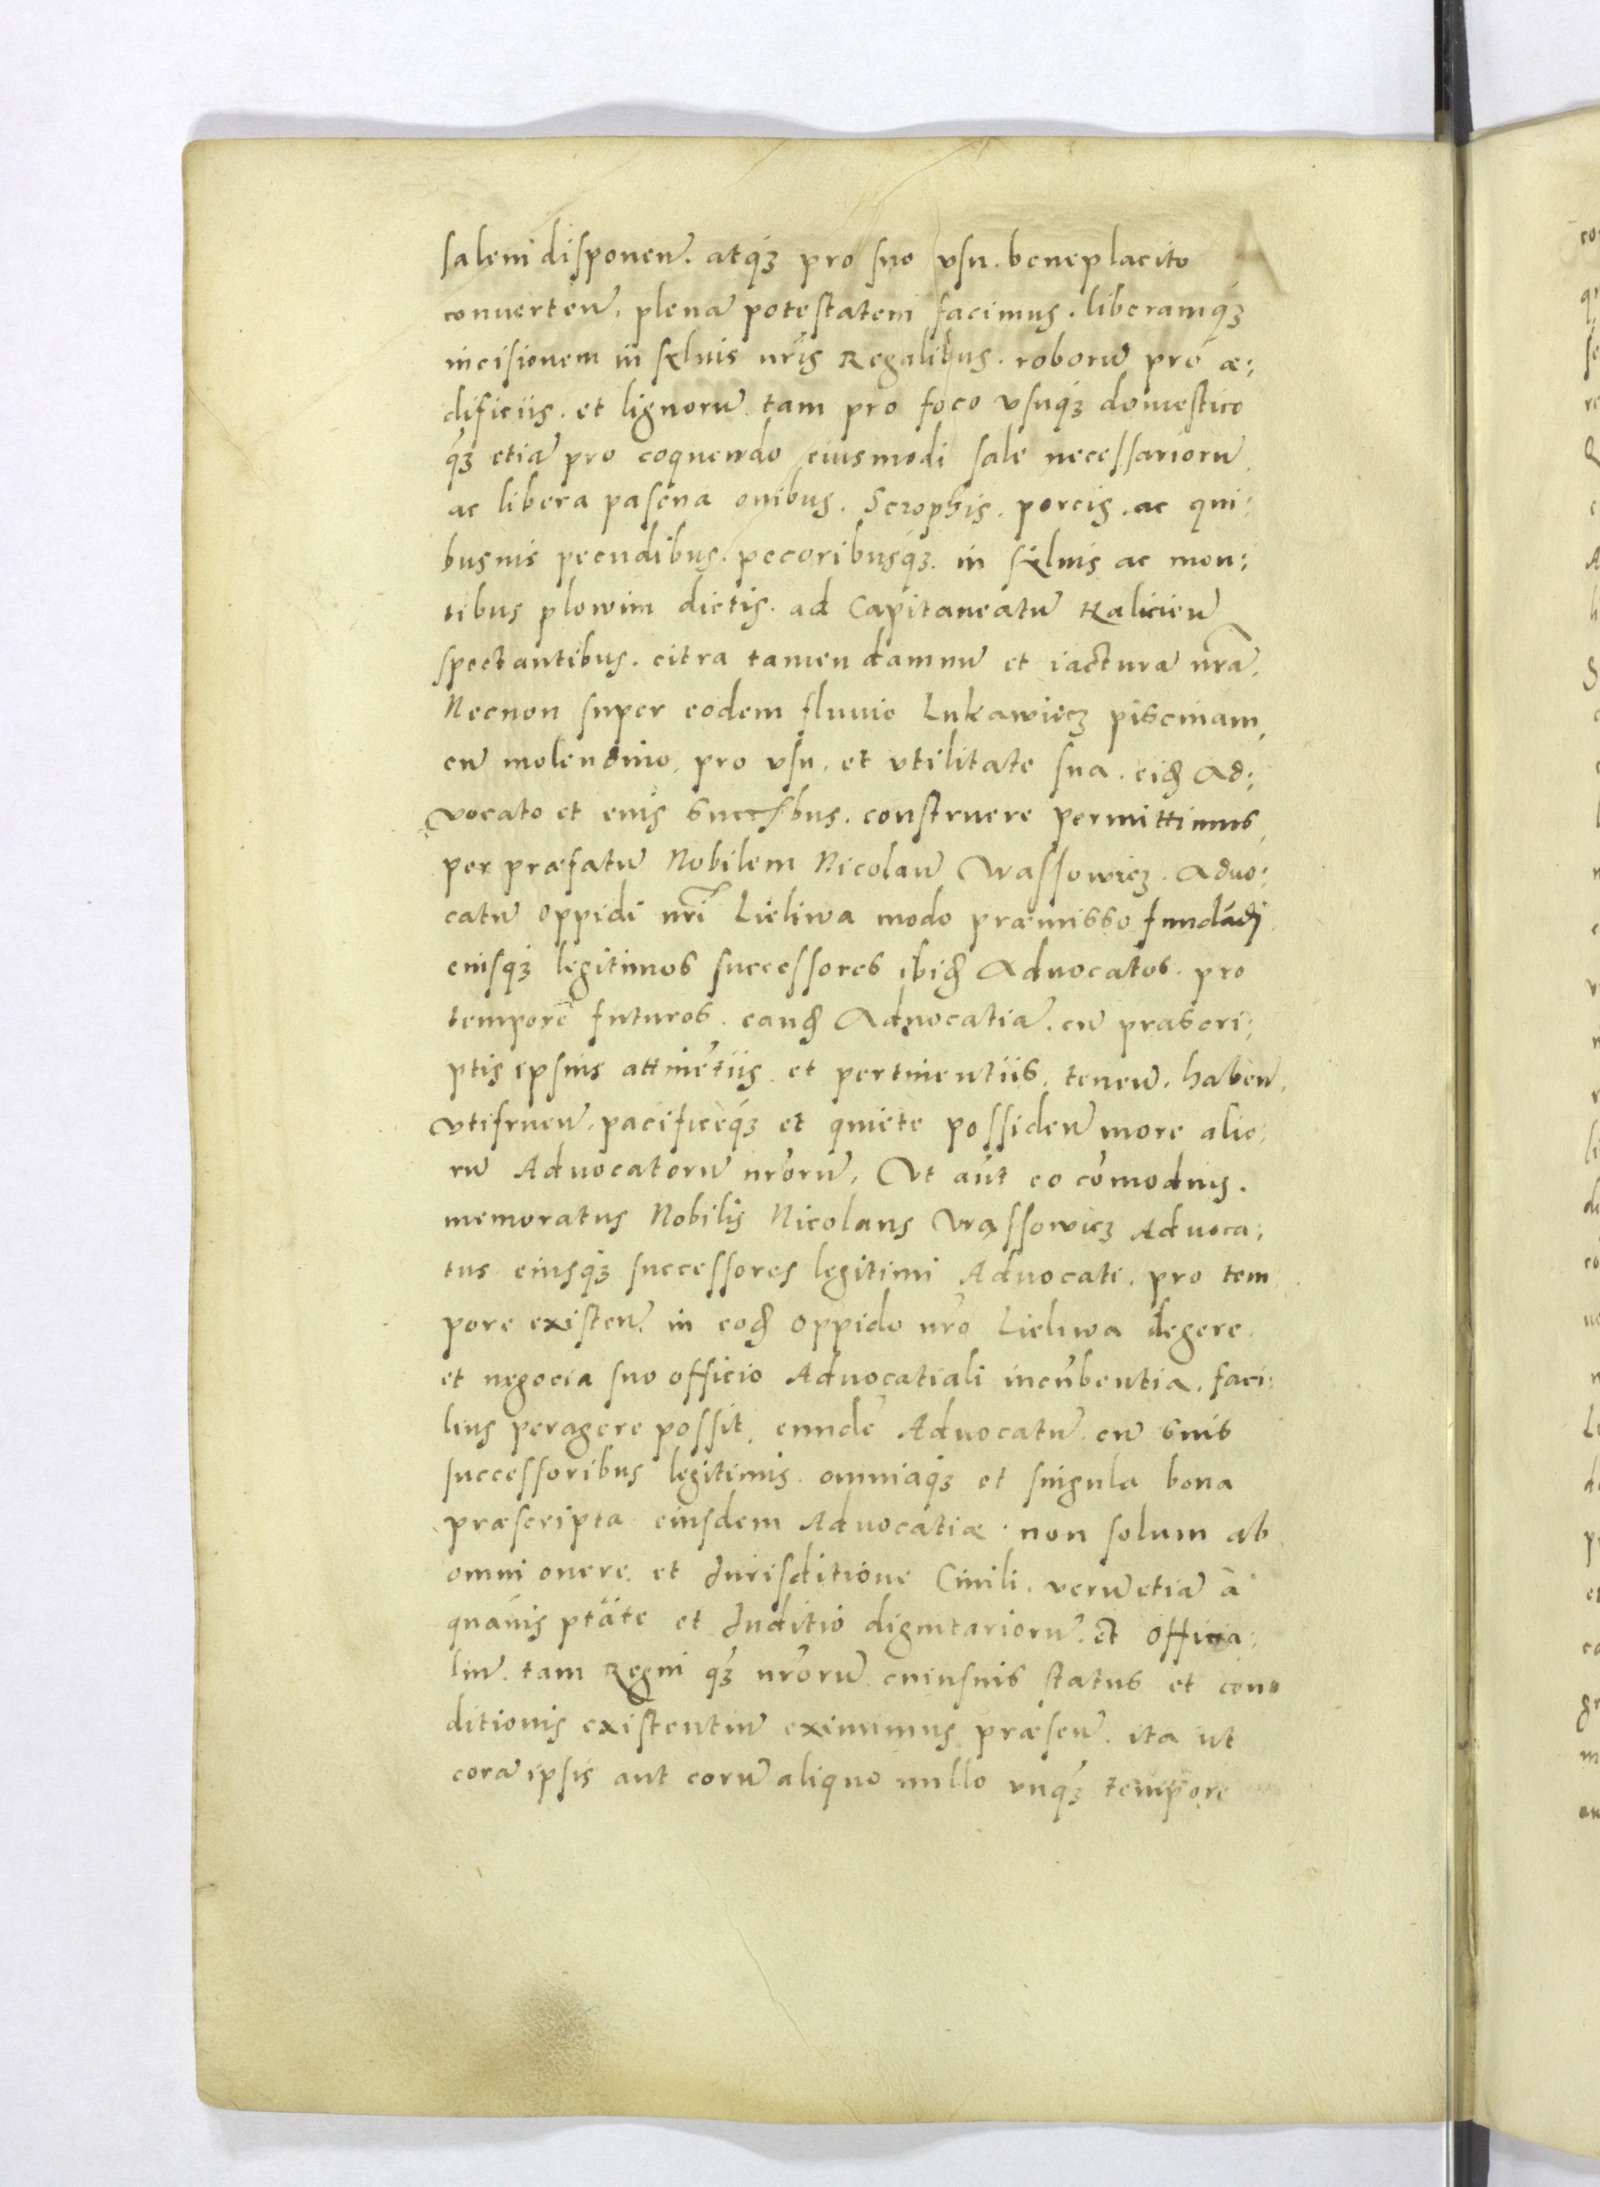 salem disponeñ. atq́ꝫ pro suo vsu. beneplacito
conuerteñ. plenã potestatem facimus. liberamq́ꝫ
incisionem in syluis nr̃is Regalibus. roborũ pro æ:
dificiis. et lignorũ tam pro foco vsuqꝫ domestico
q̃ꝫ etiã pro coquendo eiusmodi sale necessariorũ
ac libera pascua ouibus. Scrophis. porcis. ac qui:
busuis pecudibus. pecoribusq́ꝫ. in syluis ac mon:
tibus plowim dictis. ad Capitaneatũ Halicieñ
spectantibus. citra tamen damnũ et iacturã nr̃ã.
Necnon super eodem fluuio Lukawiecꝫ piscinam,
cũ molendino, pro vsu, et vtilitate sua. eid̃ Ad:
vocato et eius succ̃sbus. construere permittimus,
per præfatũ Nobilem Nicolaũ Wassowicꝫ. Aduo:
catũ Oppidi nr̃i Lieliwa modo præmisso fundãdi
eiusqꝫ legitimos successores ibid̃ Aduocatos. pro
tempore futuros. eand̃ Aduocatiã. cũ præscri:
ptis ipsius attinẽtiis et pertinentiis, teneñ. habeñ.
vtifrueñ. pacificeq́ꝫ et quiete possideñ more alio:
rũ Aduocatorũ nr̃orũ. Vt aũt eo cõmodius.
memoratus Nobilis Nicolaus Wassowicꝫ Aduoca:
tus eiusqꝫ successores legitimi Aduocati. pro tem
pore existeñ. in eod̃ Oppido nr̃o Lieliwa degere.
et negocia suo officio Aduocatiali incũbentia. faci:
lius peragere possit, eundẽ Aduocatũ cũ suis
successoribus legitimis. omniaqꝫ et singula bona
præscripta eiusdem Aduocatiæ. non solum ab
omni onere. et Jurisditione Ciuili. verũetiã à
quauis ptãte et Juditio dignitariorũ. et Officia:
liũ. tam Regni q̃ꝫ nr̃orũ cuiusuis status et con
ditionis existentiũ eximimus præseñ. ita ut
corã ipsis aut eorũ aliquo nullo vnq̃ꝫ tempore